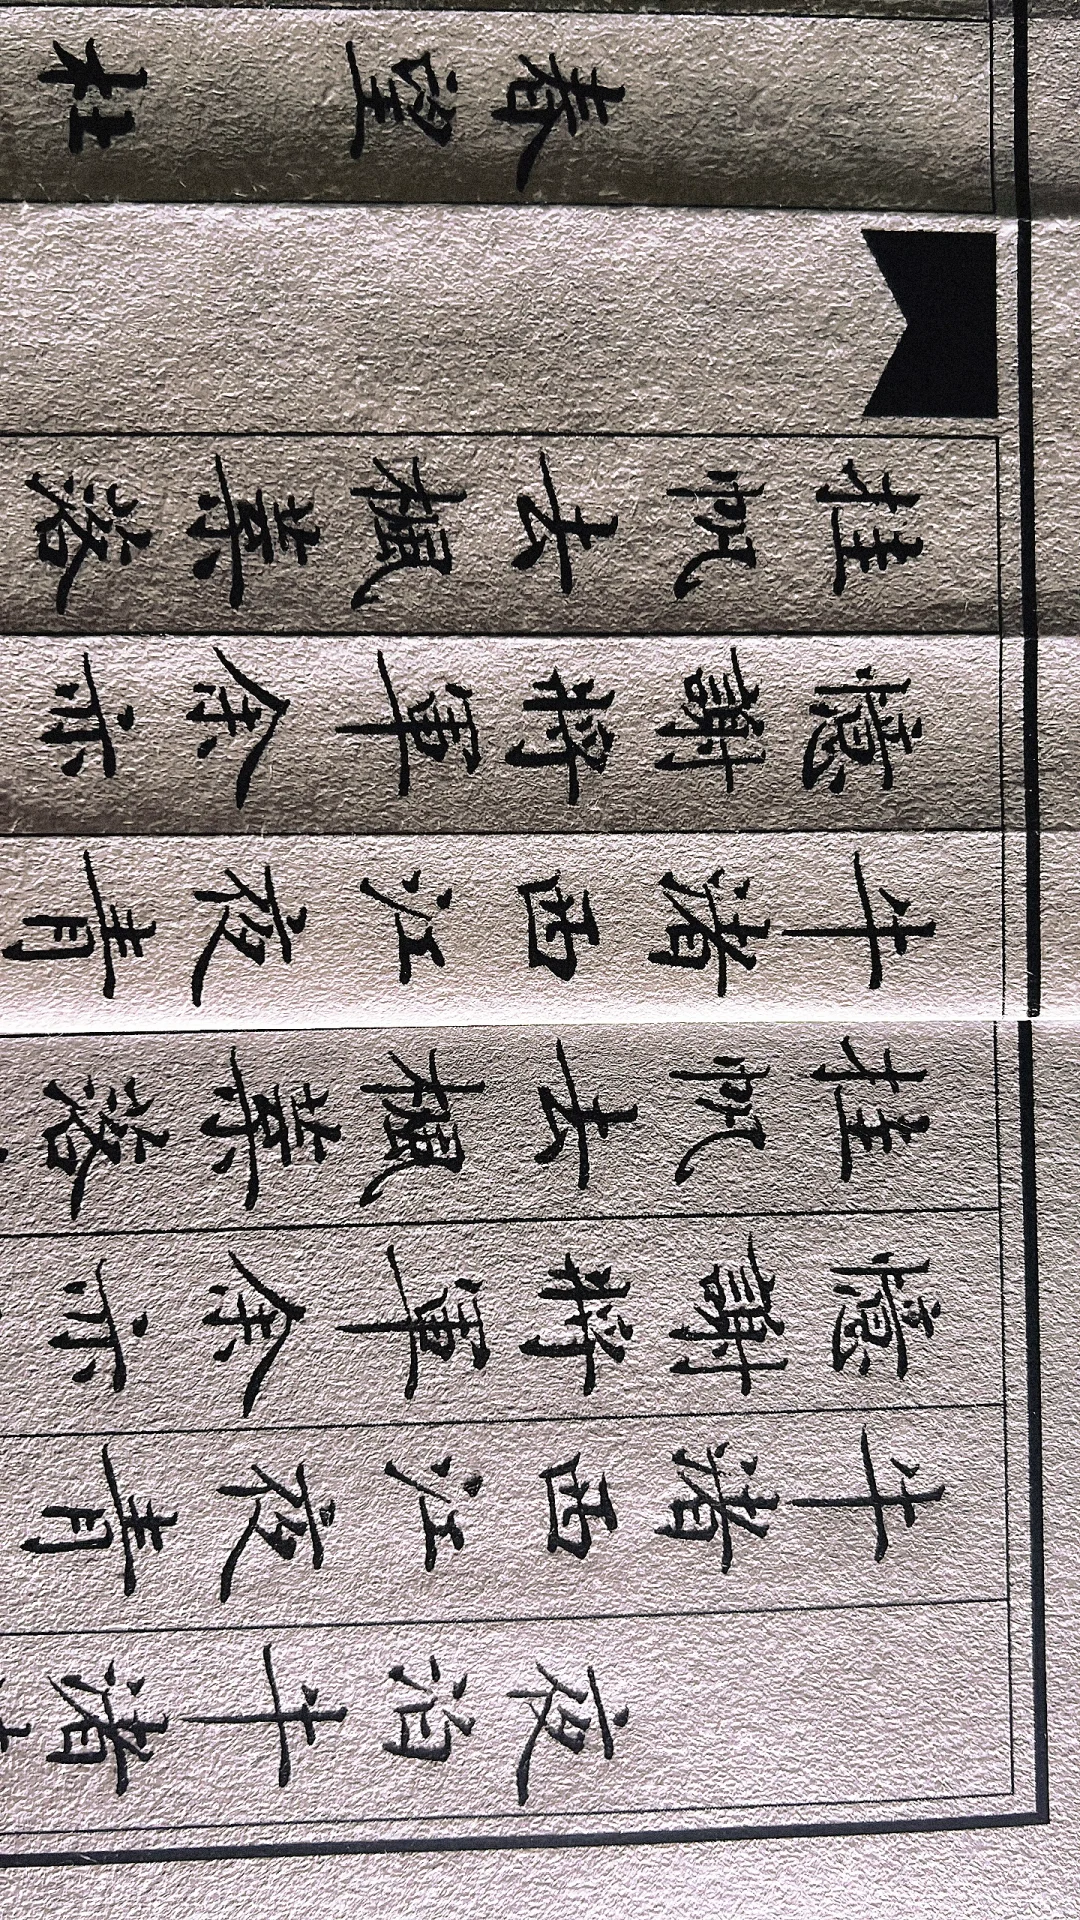 夜泊牛渚
牛渚西江夜青
憶謝將軍余亦
挂帆去楓葉落
牛渚西江夜青
憶謝將軍余亦
挂帆去楓葉落
春望杜